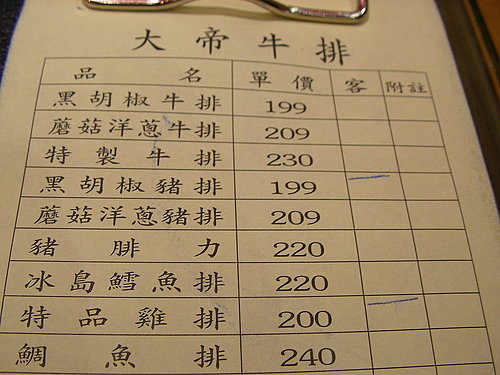 大帝牛排
品名 單價 客 附註
黑胡椒牛排 199
蘑菇洋蔥牛排 209
特製牛排 230
黑胡椒豬排 199
蘑菇洋蔥豬排 209
豬腓力 220
冰島鱈魚排 220
特品雞排 200
鯛魚排 240